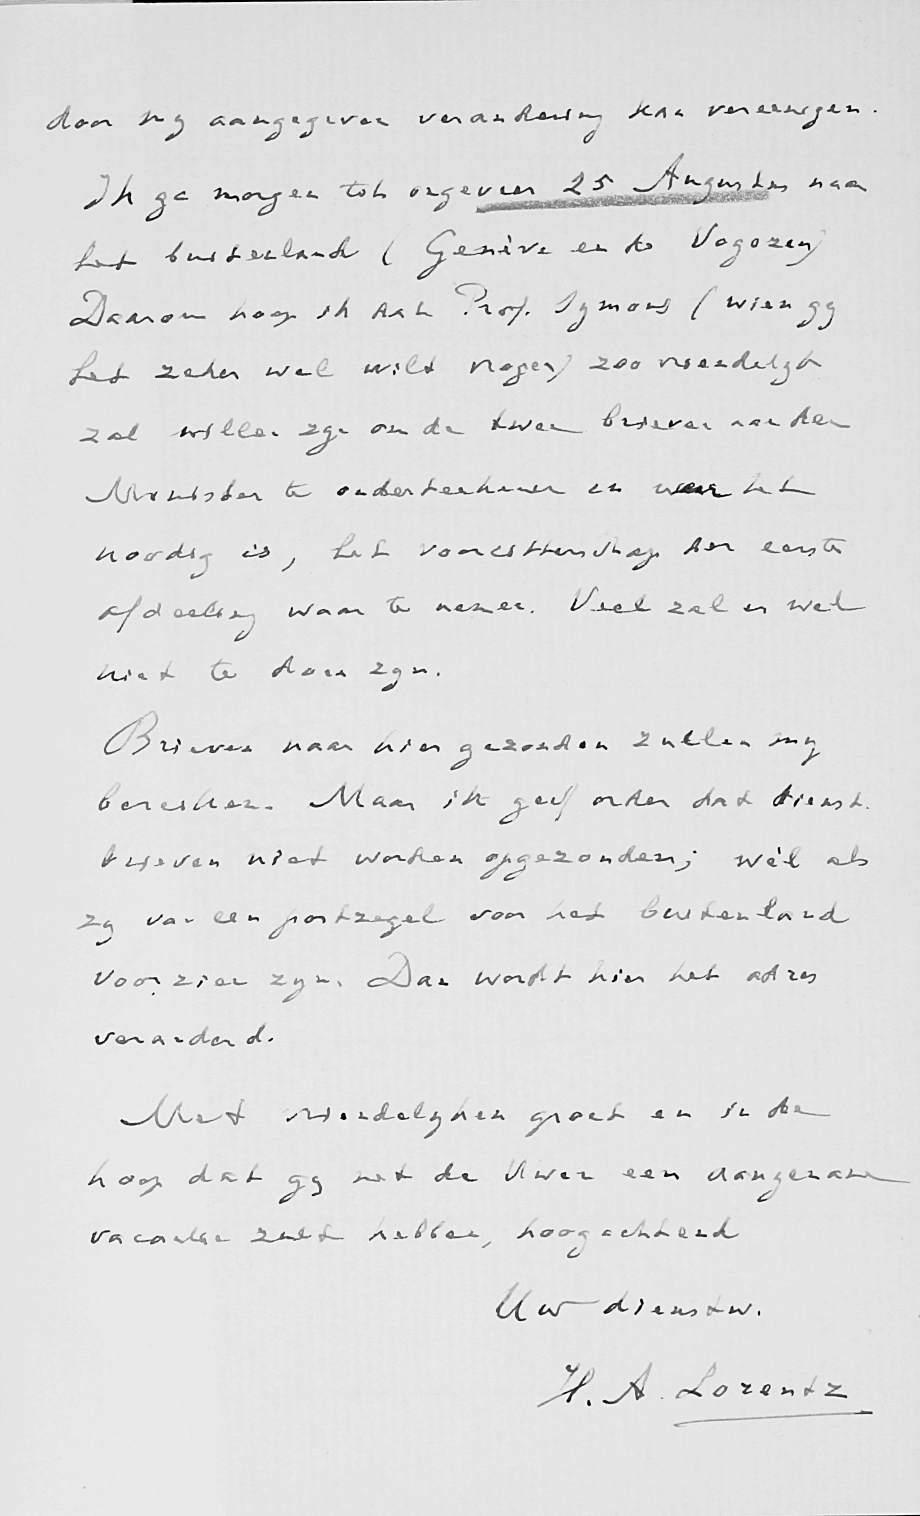 door mij aangegeven verandering kan vereenigen.
Ik ga morgen tot ongeveer 25 Augustus naar
het buitenland (Genève en de Vogezen)
Daarom hoop ik dat Prof. Symons (wien gij
het zeker wel wilt vragen) zoo vriendelijk
zal willen zijn om de twee brieven aan den
Minister te onderteekenen en waar het
noodig is, het voorzitterschap der eerste
afdeeling waar te nemen. Veel zal er wel
niet te doen zijn.
Brieven naar hier gezonden zullen mij
bereiken. Maar ik geef order dat dienst-
brieven niet worden opgezonden; wèl als
zij van een postzegel voor het buitenland
voorzien zijn. Dan wordt hier het adres
veranderd.
Met vriendelijken groet en in de
hoop dat gij met de Uwen een aangename
vacantie zult hebben, hoogachtend
Uw dienstw.
H. A. Lorentz